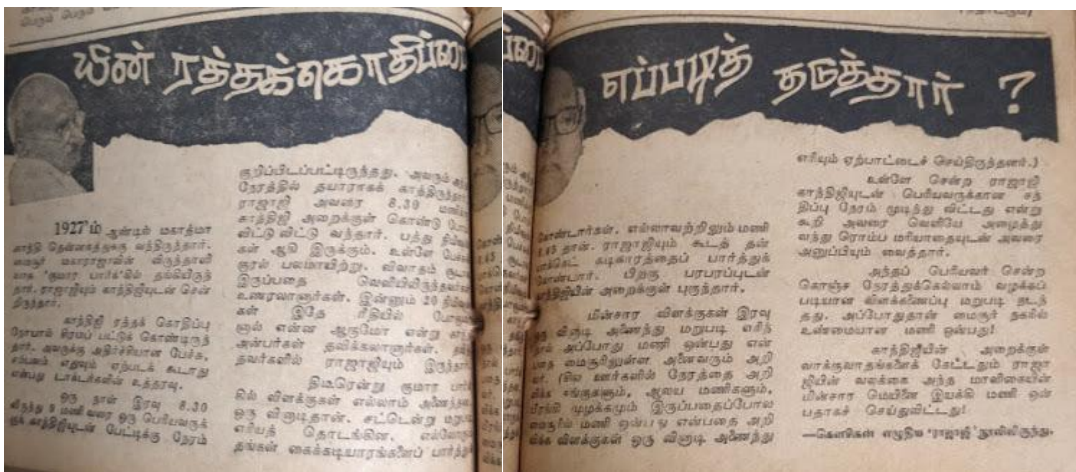 பெரும் பெரும்
யின் ரத்தக்கொதிப்பை
1927'ம் ஆண்டில் மகாத்மா
காந்தி தென்னகத்துக்கு வந்திருந்தார்.
மைசூர் மகாராஜாவின் விருந்தாளி
யாக 'குமார பார்க்'கில் தங்கியிருந்
தார். ராஜாஜியும் காந்திஜியுடன் சென்
றிருந்தார்.
காந்திஜி ரத்தக் கொதிப்பு
நோயால் சிரமப் பட்டுக் கொண்டிருந்
தார். அவருக்கு அதிர்ச்சியான பேச்சு,
சம்பவம் எதுவும் ஏற்படக் கூடாது
என்பது டாக்டர்களின் உத்தரவு.
ஒரு நாள் இரவு 8.30
லிருந்து 9 மணி வரை ஒரு பெரியவருக்
குக் காந்திஜியுடன் பேட்டிக்கு நேரம்
குறிப்பிடப்பட்டிருந்தது. அவரும்
நேரத்தில் தயாராகக் காத்திருந்
ராஜாஜி அவரை 8.30 மணிக்
காந்திஜி அறைக்குள் கொண்டு போ
விட்டு விட்டு வந்தார். பத்து நிமிஷ
கள் ஆகி இருக்கும். உள்ளே பேச்சு
குரல் பலமாயிற்று. விவாதம்
இருப்பதை வெளியிலிருந்தவர்
உணரலானார்கள். இன்னும் 20 நிமிஷ
கள் இதே ரீதியில் போ
னால் என்ன ஆகுமோ என்று
அன்பர்கள் தவிக்கலானார்கள்.
தவர்களில் ராஜாஜியும் இருந்தார்
திடீரென்று குமார பார்
கில் விளக்குகள் எல்லாம் அணைந்த
ஒரு வினாடிதான். சட்டென்று மறு
எரியத் தொடங்கின. எல்லோரு
தங்கள் கைக்கடியாரங்களைப் பார்த்து
எப்படித் தடுத்தார் ?
கொண்டார்கள். எல்லாவற்றிலும் மணி
8.45 தான். ராஜாஜியும் கூடத் தன்
பாக்கெட் கடிகாரத்தைப் பார்த்துக்
கொண்டார். பிறகு பரபரப்புடன்
காந்திஜியின் அறைக்குள் புகுந்தார்.
மின்சார விளக்குகள் இரவு
ஒரு வினாடி அணைந்து மறுபடி எரிந்
தால் அப்போது மணி ஒன்பது என்
பதை மைசூரிலுள்ள அனைவரும் அறி
வர். (சில ஊர்களில் நேரத்தை அறி
விக்க சங்குகளும், ஆலய மணிகளும்,
பீரங்கி முழக்கமும் இருப்பதைப்போல
மைசூரில் மணி ஒன்பது என்பதை அறி
விக்க விளக்குகள் ஒரு வினாடி அணைந்து
எரியும் ஏற்பாட்டைச் செய்திருந்தனர்.)
உள்ளே சென்ற ராஜாஜி
காந்திஜியுடன் பெரியவருக்கான சந்
திப்பு நேரம் முடிந்து விட்டது என்று
கூறி அவரை வெளியே அழைத்து
வந்து ரொம்ப மரியாதையுடன் அவரை
அனுப்பியும் வைத்தார்.
அந்தப் பெரியவர் சென்ற
கொஞ்ச நேரத்துக்கெல்லாம் வழக்கப்
படியான விளக்கணைப்பு மறுபடி நடந்
தது. அப்போதுதான் மைசூர் நகரில்
உண்மையான மணி ஒன்பது!
காந்திஜியின் அறைக்குள்
வாக்குவாதங்களைக் கேட்டதும் ராஜா
ஜியின் வலக்கை அந்த மாளிகையின்
மின்சார மெயினை இயக்கி மணி ஒன்
பதாகச் செய்துவிட்டது!
—கௌசிகன் எழுதிய 'ராஜாஜி' நூலிலிருந்து.